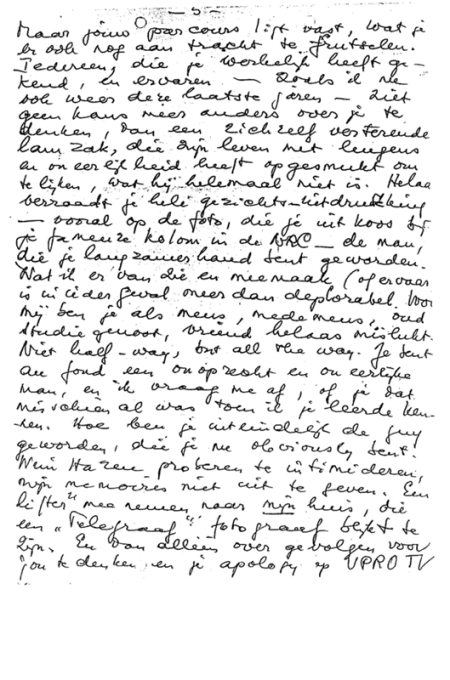 — 5 —
Maar jouw parcours ligt vast, wat je
er ook nog aan tracht te frutselen.
Iedereen, die je werkelijk heeft ge-
kend, en ervaren — zoals ik nu
ook weer deze laatste jaren — ziet
geen kans meer anders over je te
denken, dan een zichzelf
lamzak, die zijn leven met leugens
en oneerlijkheid heeft opgesmukt om
te lijken, wat hij helemaal niet is. Helaas
verraadt je hele gezichts-uitdrukking
— vooral op de foto, die je uit koos bij
je fameuze kolom in de NRC — de man,
die je langzamerhand bent geworden.
Wat ik er van zie en meemaak (of ervaar
is in ieder geval meer dan deplorabel. Voor
mij ben je als mens, medemens, oud
studiegenoot, vriend helaas mislukt.
Niet half-way, but all the way. Je bent
au fond een onoprecht en oneerlijke
man, en ik vraag me af, of je dat
misschien al was toen ik je leerde ken-
nen. Hoe ben je uiteindelijk de guy
geworden, die je nu obviously bent.
Wim Hazeu proberen te intimideren,
mijn memoires niet uit te geven. Een
"lifter" mee nemen naar mijn huis, die
een "Telegraaf" fotograaf blijkt te
zijn. En dan alleen over gevolgen voor
jou te denken en je apology op VPRO TV